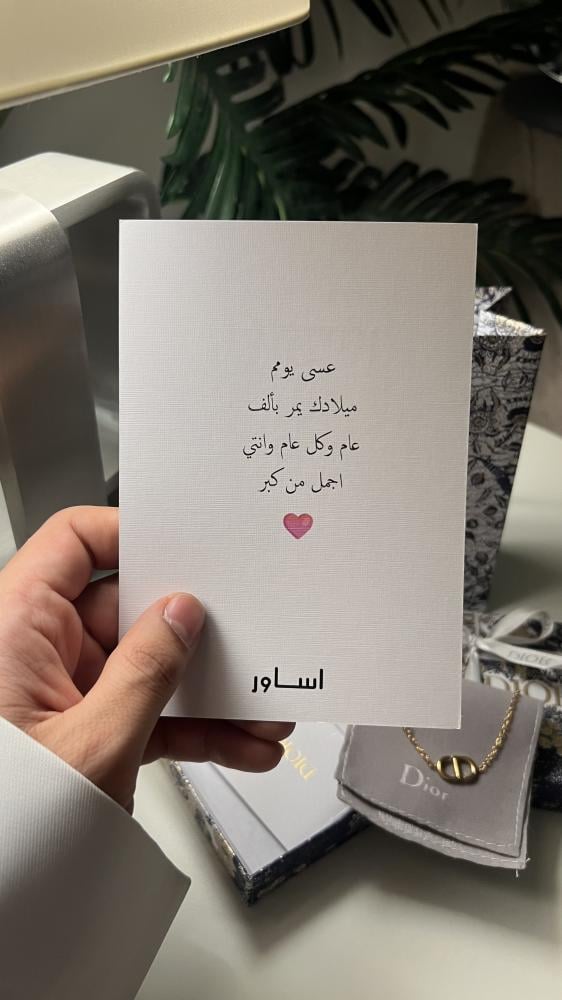 عسى يومم
ميلادك يمر بألف
عام وكل عام وانتي
اجمل من كبر
اساور
DIOR
DIOR
DIOR
Dior